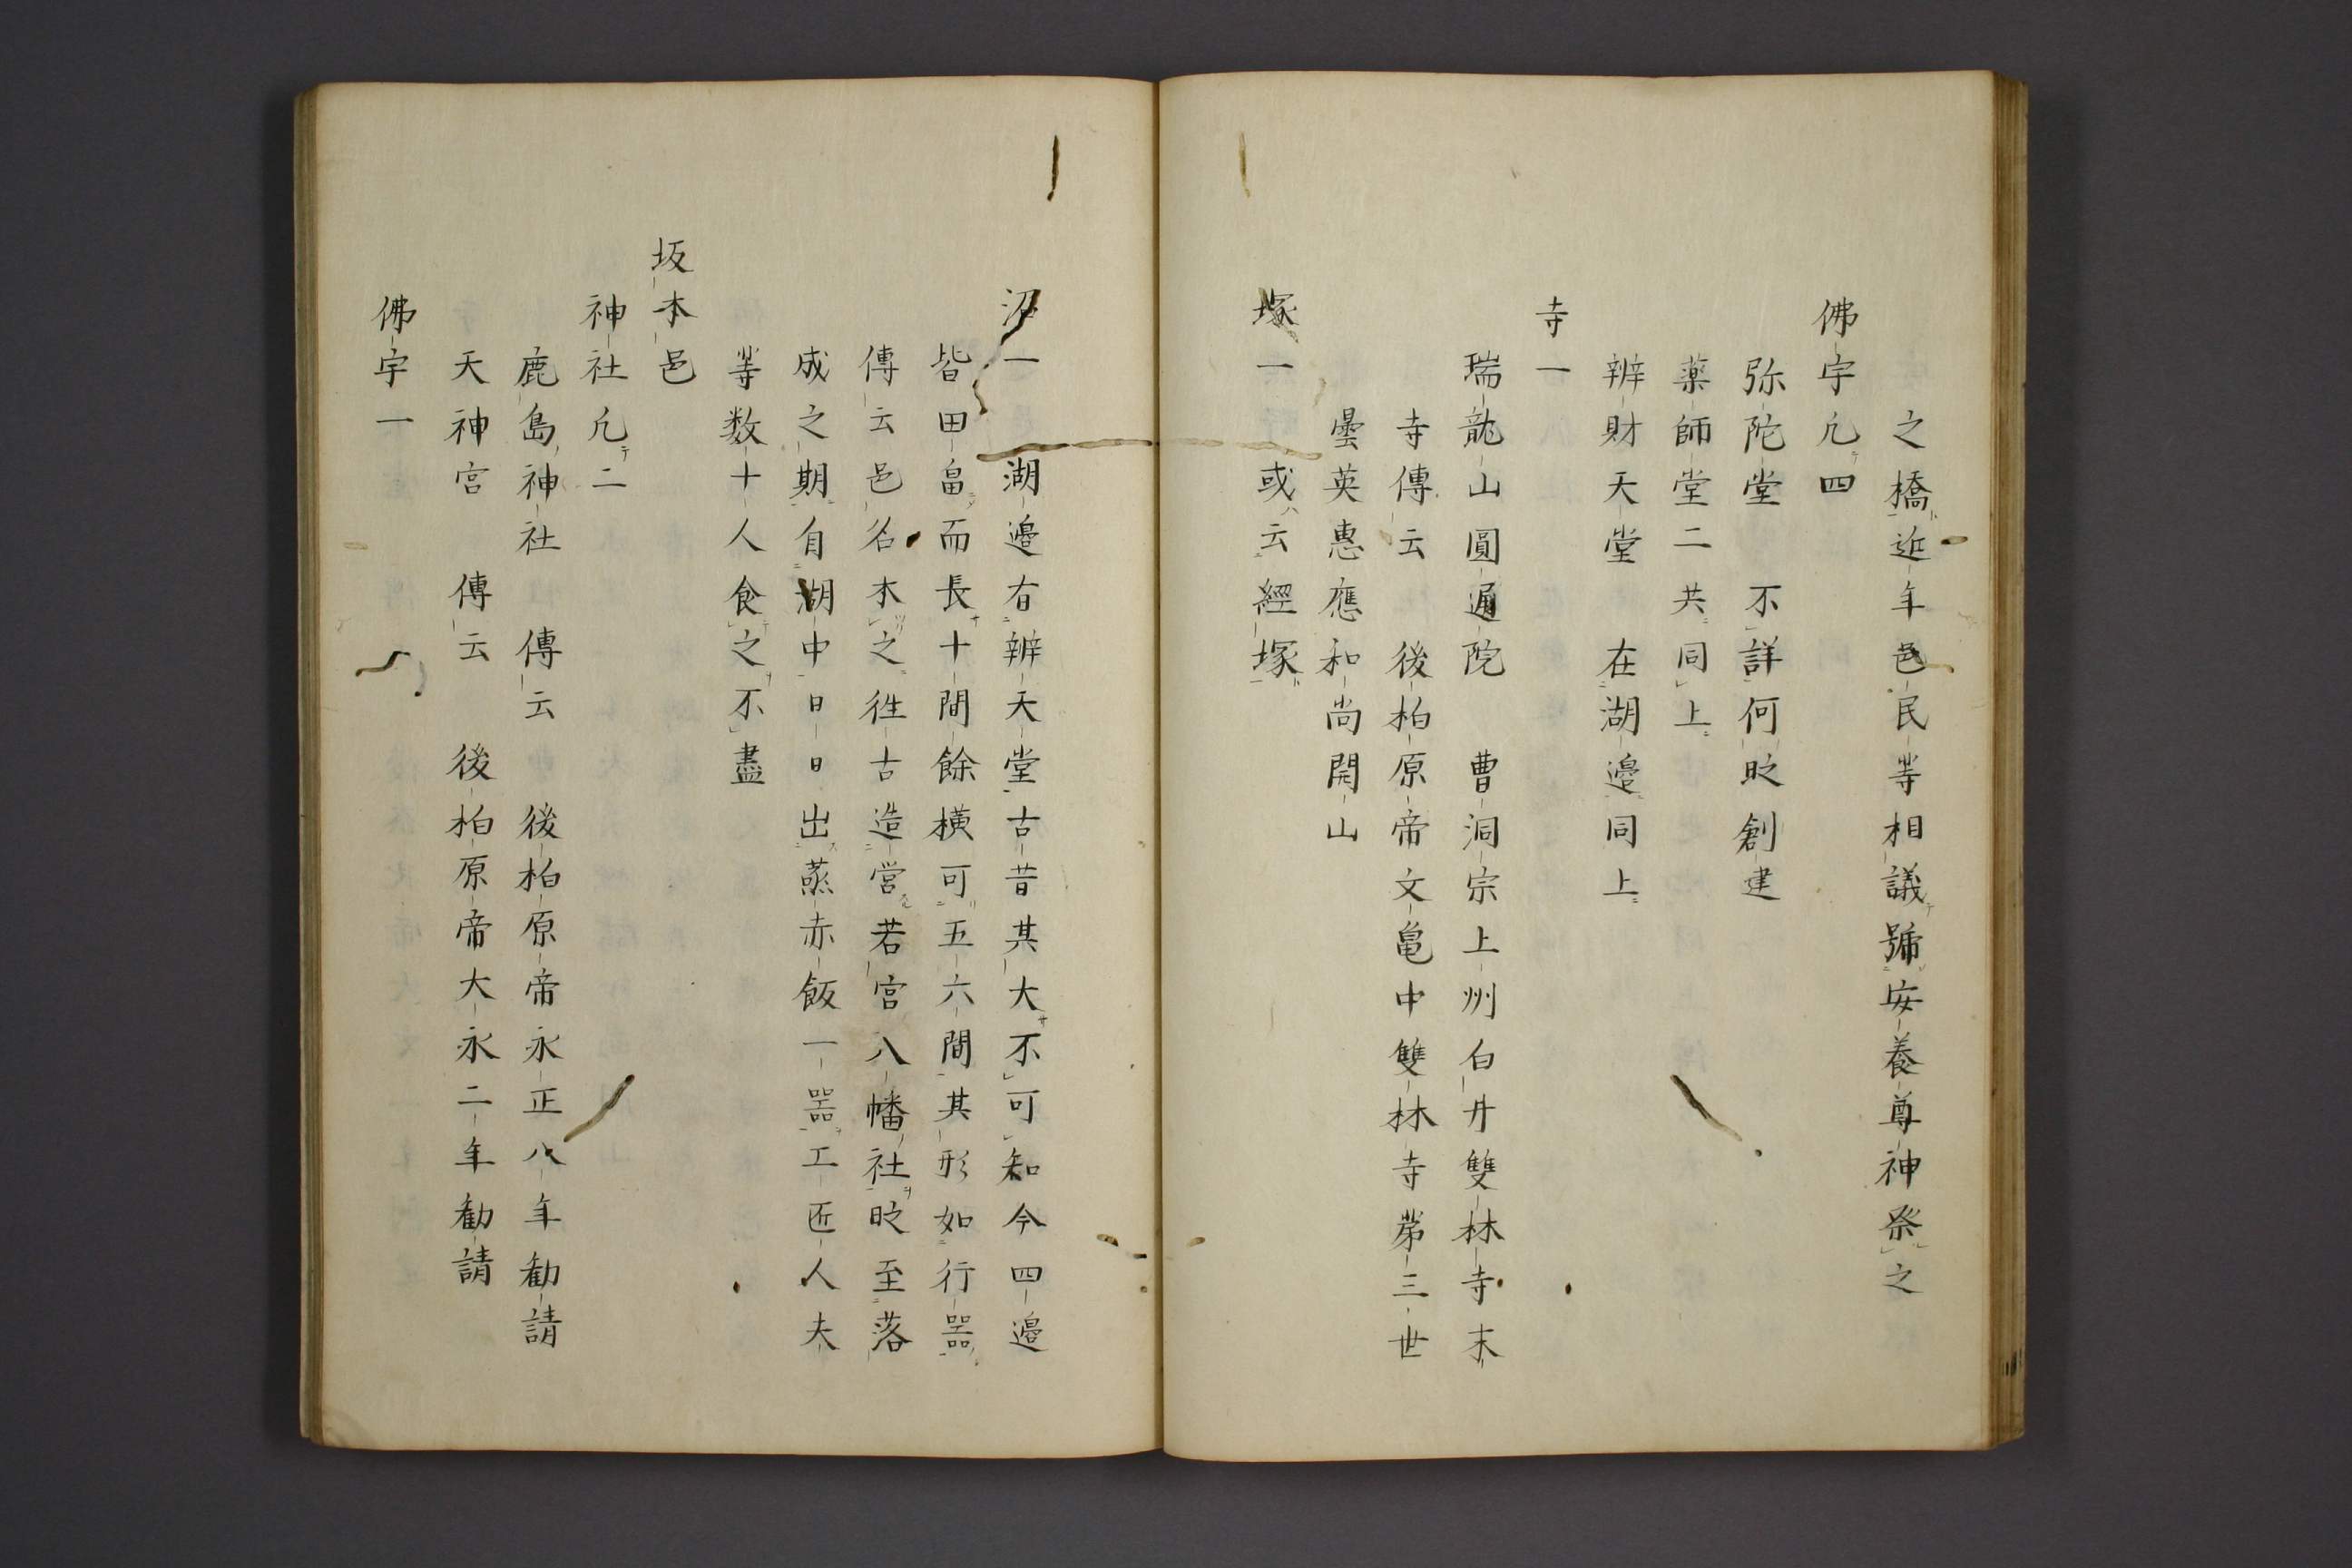 之橋近年邑民等相議號安養尊神祭之
佛宇凢四
弥陀堂　不詳何時創建
薬師堂二共同上
辨財天堂　在湖邉同上
寺一
瑞龍山圓通院　曹洞宗上州白井雙林寺末
寺傳云　後柏原帝文亀中雙林寺第三世
曇英惠應和尚開山
塚一　或云經塚
沼一　湖邉有辨天堂古昔其大不可知今四邉
皆田畠而長十間餘横可五六間其形如行器
傳云邑名木之徃古造営若宮八幡社時至落
成之期自湖中日日出蒸赤飯一器工匠人夫
等数十人食之不盡
坂本邑
神社凢二
鹿島神社　傳云　後柏原帝永正八年勧請
天神宮　傳云　後柏原帝大永二年勧請
佛宇一